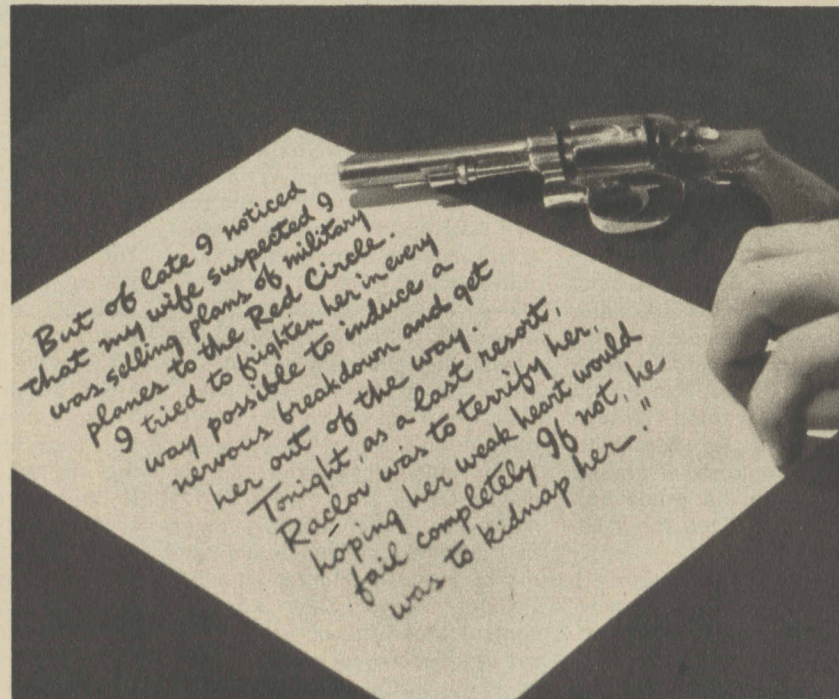 But of late I noticed
that my wife suspected I
was selling plans of military
planes to the Red Circle.
I tried to frighten her in every
way possible to induce a
nervous breakdown and get
her out of the way.
Tonight, as a last resort,
Raclov was to terrify her,
hoping her weak heart would
fail completely If not, he
was to kidnap her."